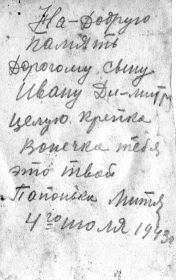 На-добрую
память
дорогому сыну
Ивану Дм-митр
целую крепка
Ванечка тебя
это твой
Папонька Митя
4го июля 1943